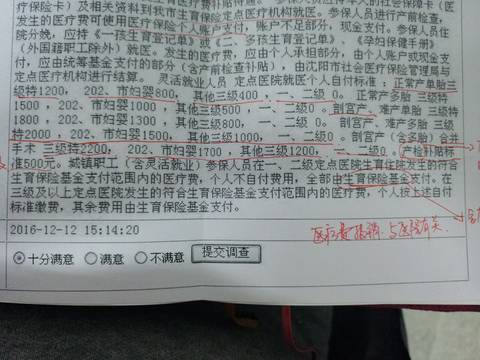 疗保险卡）及相关资料到我市生育保险定点医疗机构就医。参保人员进行产前检查，
发生的医疗费可使用医疗保险个人账户支付，账户不足部分，现金支付。参保人员住
院分娩，应持《一孩生育登记单》或《二、多孩生育登记单》、《孕妇保健手册》
（外国籍职工除外）就医。发生的医疗费，应由个人承担部分，由个人账户或现金支
付，应由统筹基金支付的部分（含产前检查补贴），由沈阳市社会医疗保险管理局与
定点医疗机构进行结算。 灵活就业人员 定点医院就医个人自付标准：正常产单胎三
级特1200，202、市妇婴800，其他三级400，一、二级0。 正常产多胎 三级特
1500，202、市妇婴1000，其他三级500，一、二级0。剖宫产、难产单胎 三级特
1800，202、市妇婴1300，其他三级800，一、二级0。剖宫产、难产多胎 三级
特2000，202、市妇婴1500，其他三级1000，一、二级0。 剖宫产（含多胎）合并
手术 三级特2200，202、市妇婴1700，其他三级1200，一、二级0。 产检补贴标
准500元。城镇职工（含灵活就业）参保人员在一、二级定点医院生育住院发生的符合
生育保险基金支付范围内的医疗费，个人不自付费用，全部由生育保险基金支付。在
三级及以上定点医院发生的符合生育保险基金支付范围内的医疗费，个人按上述自付
标准缴费，其余费用由生育保险基金支付。
2016-12-12 15:14:20
医疗费报销 与医院有关.
十分满意 满意 不满意 提交调查